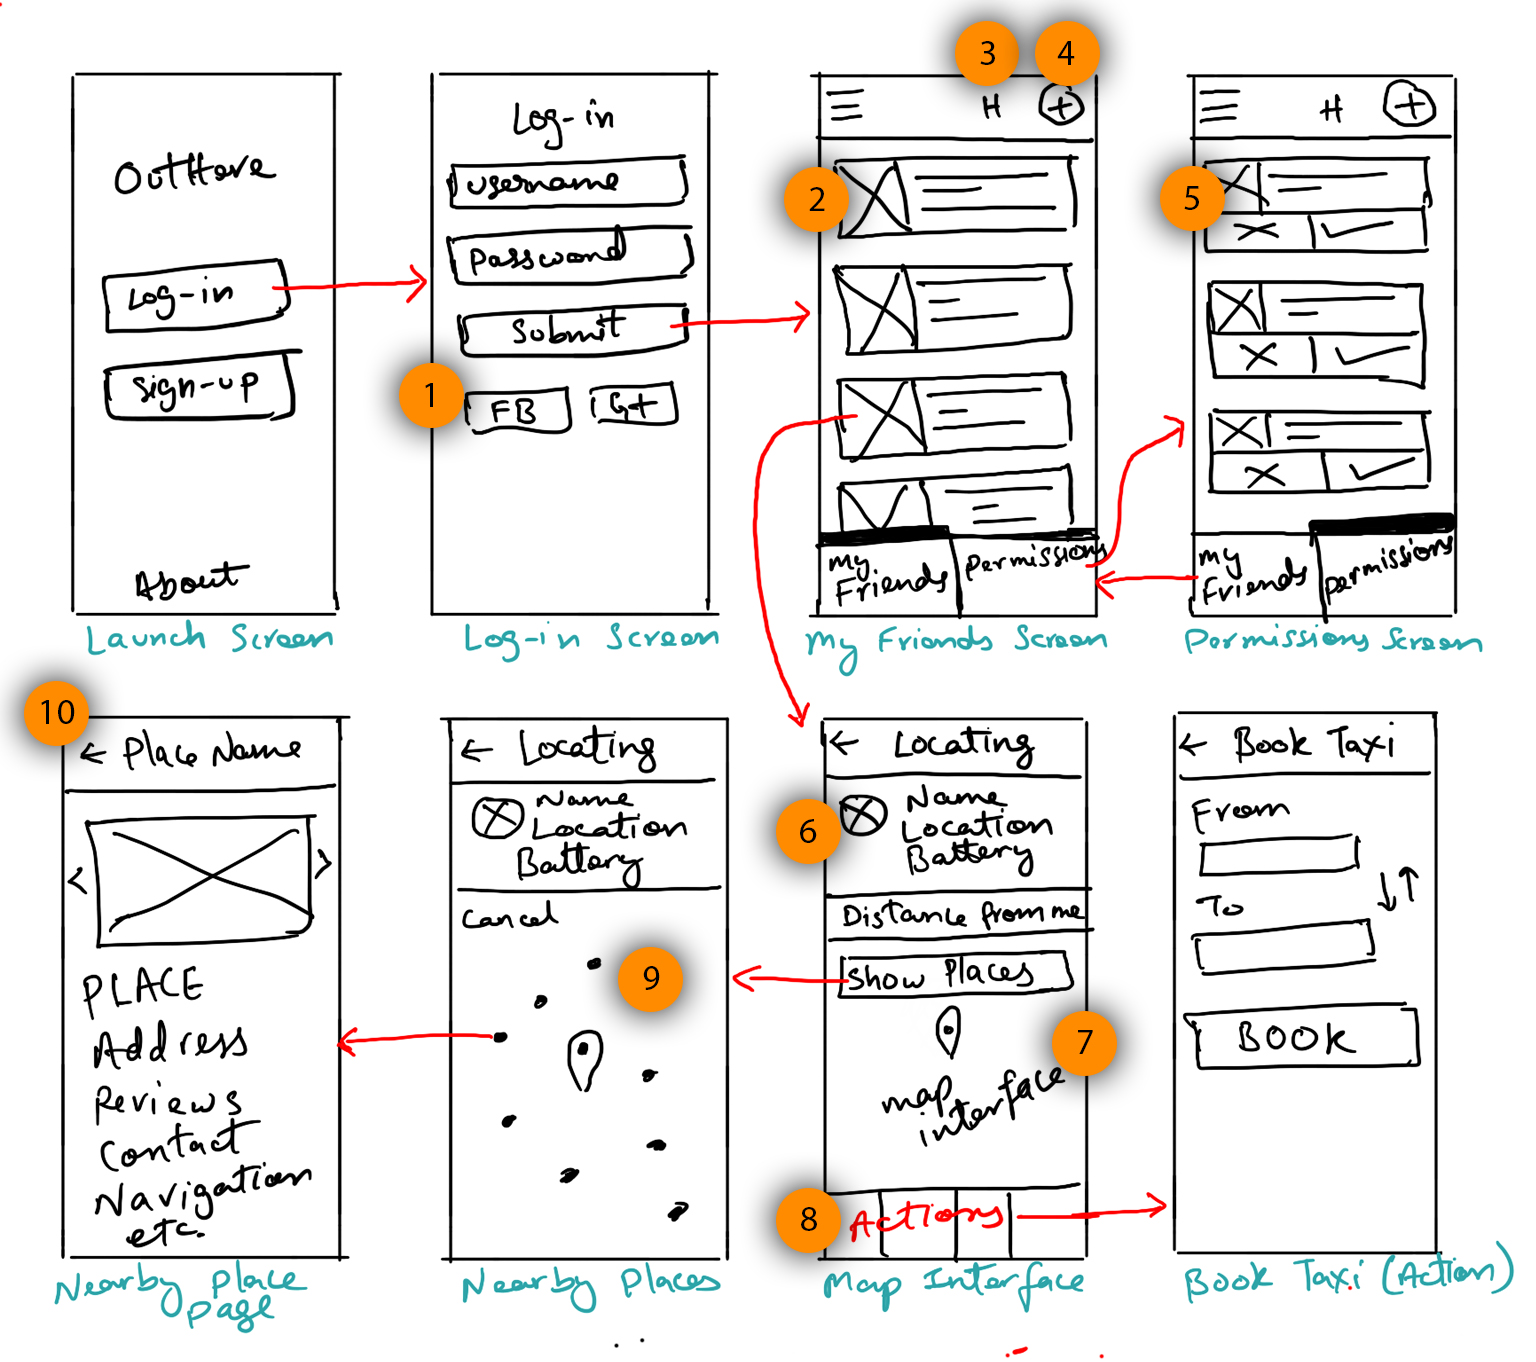 3
4
OutHere
Log-in
Sign-up
About
Launch Screen
Log-in
username
password
Submit
1
FB
G+
Log-in Screen
H
2
My
Friends
Permissions
My Friends Screen
H
5
My
Friends
Permissions
Permissions Screen
10
← Place Name
<
>
PLACE
Address
Reviews
Contact
Navigation
etc.
Nearby Place
Page
← Locating
Name
Location
Battery
Cancel
9
Nearby Places
← Locating
6
Name
Location
Battery
Distance from me
Show Places
7
map
interface
8
Actions
Map Interface
← Book Taxi
From
To
BOOK
Book Taxi (Action)